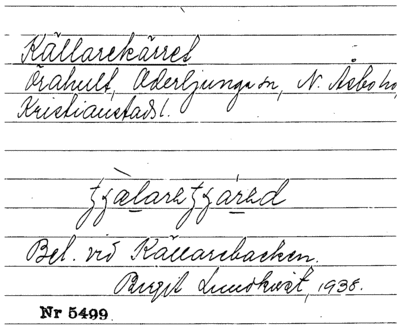 Källarekärret
Örahult, Oderljunga sn, N. Åsbo hd,
Kristianstads l.
Bel. vid Källarebacken.
Birgit Lundkvist, 1938.
Nr 5499